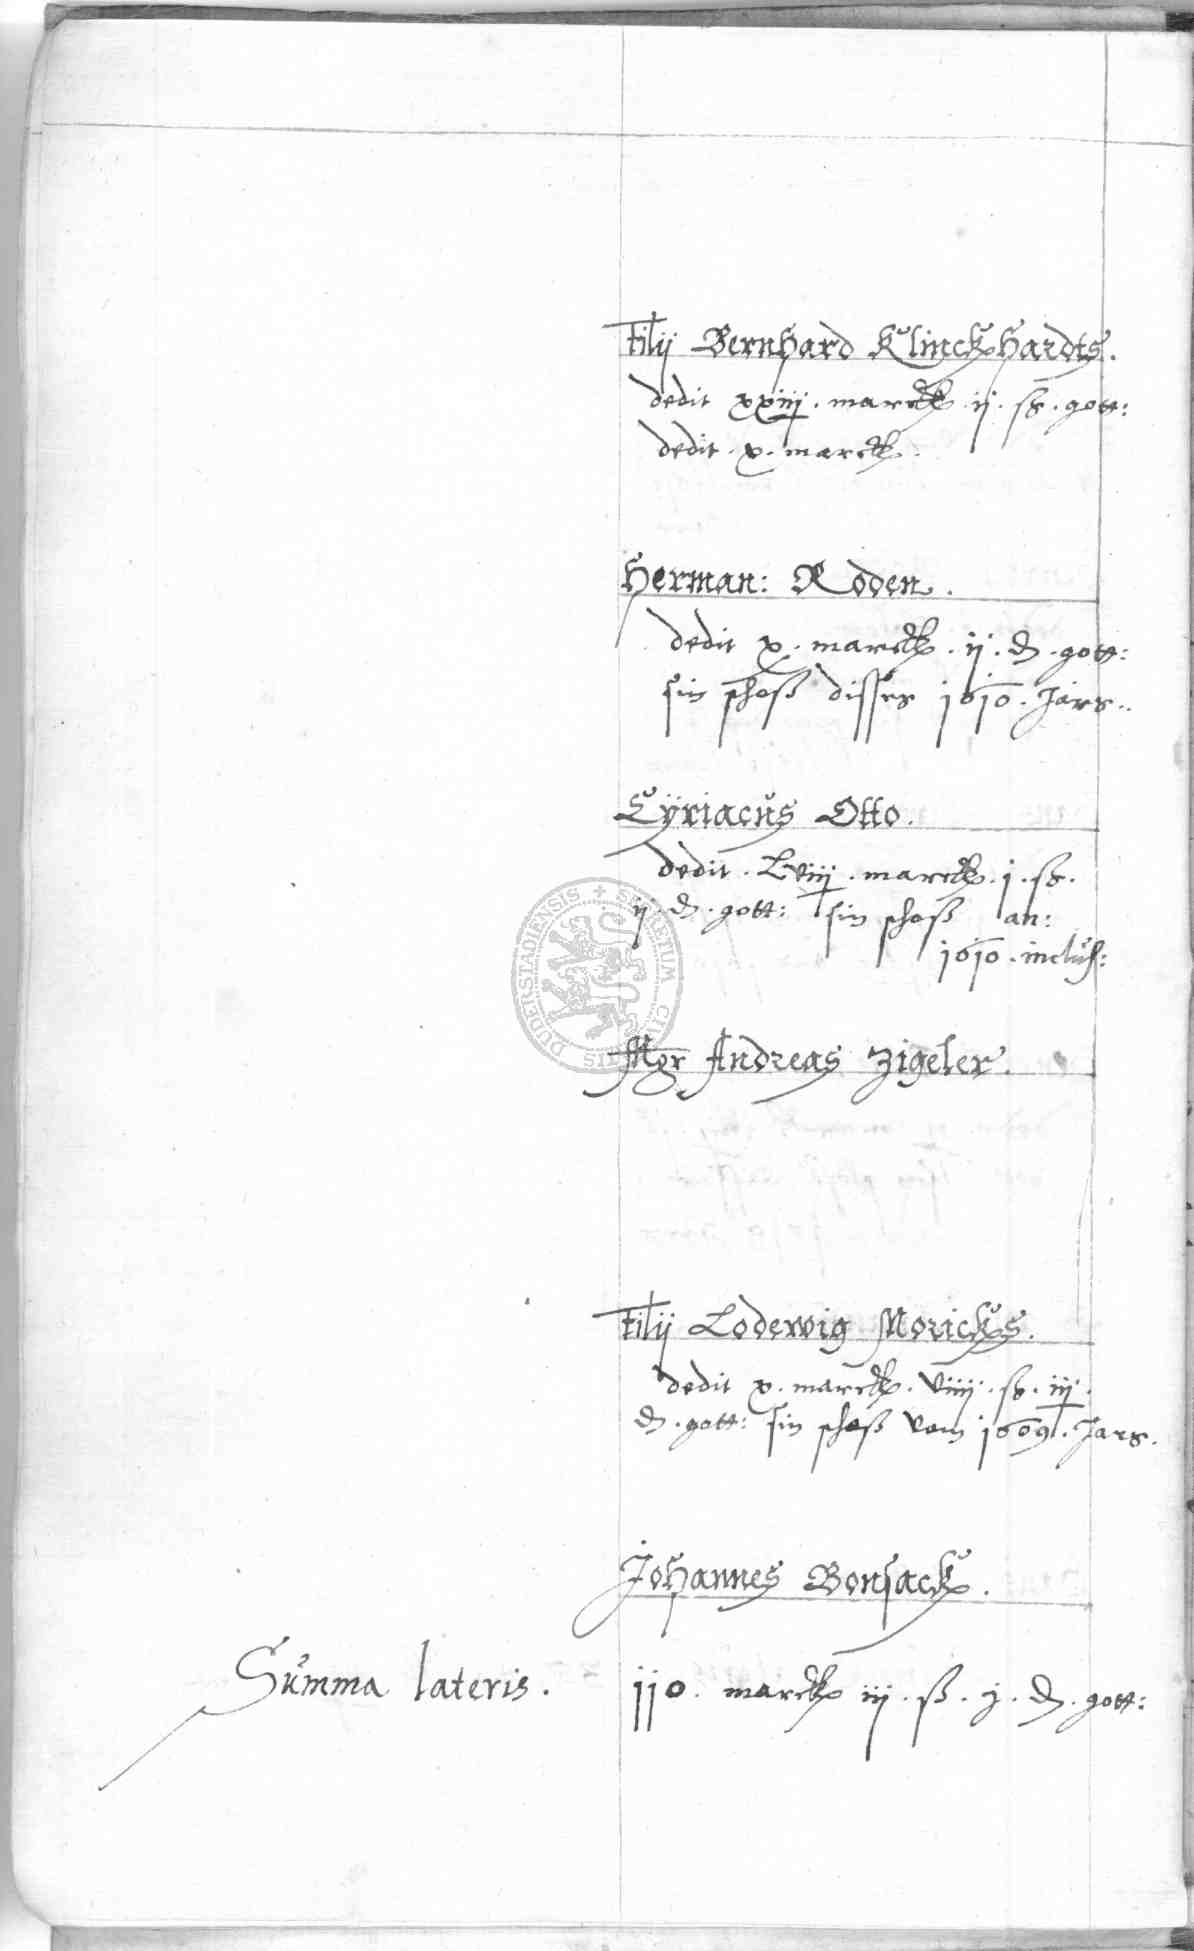 Filij Bernhard Klinckhardts.
dedit xxiiij. marck. ij. ß. gott:
dedit. x. marck.
Herman: Roden.
dedit x. marck. ij. d. gott:
sin schoß disses 1610. Jars.
Cÿriacus Otto.
dedit. Lviiij. marck. j. ß.
ij. d. gott: sin schoß an:
1610. inclus:
SECRETUM CIVITATIS DUDERSTADIENSIS
Mgr Andreas Zigeler.
Filij Lodewig Moricks.
dedit x. marck. viiij. ß. iij.
d. gott: sin schoß vom 1609. Jars.
Johannes Bonsack.
Summa lateris. jj0. marck iij. ß. j. d. gott: